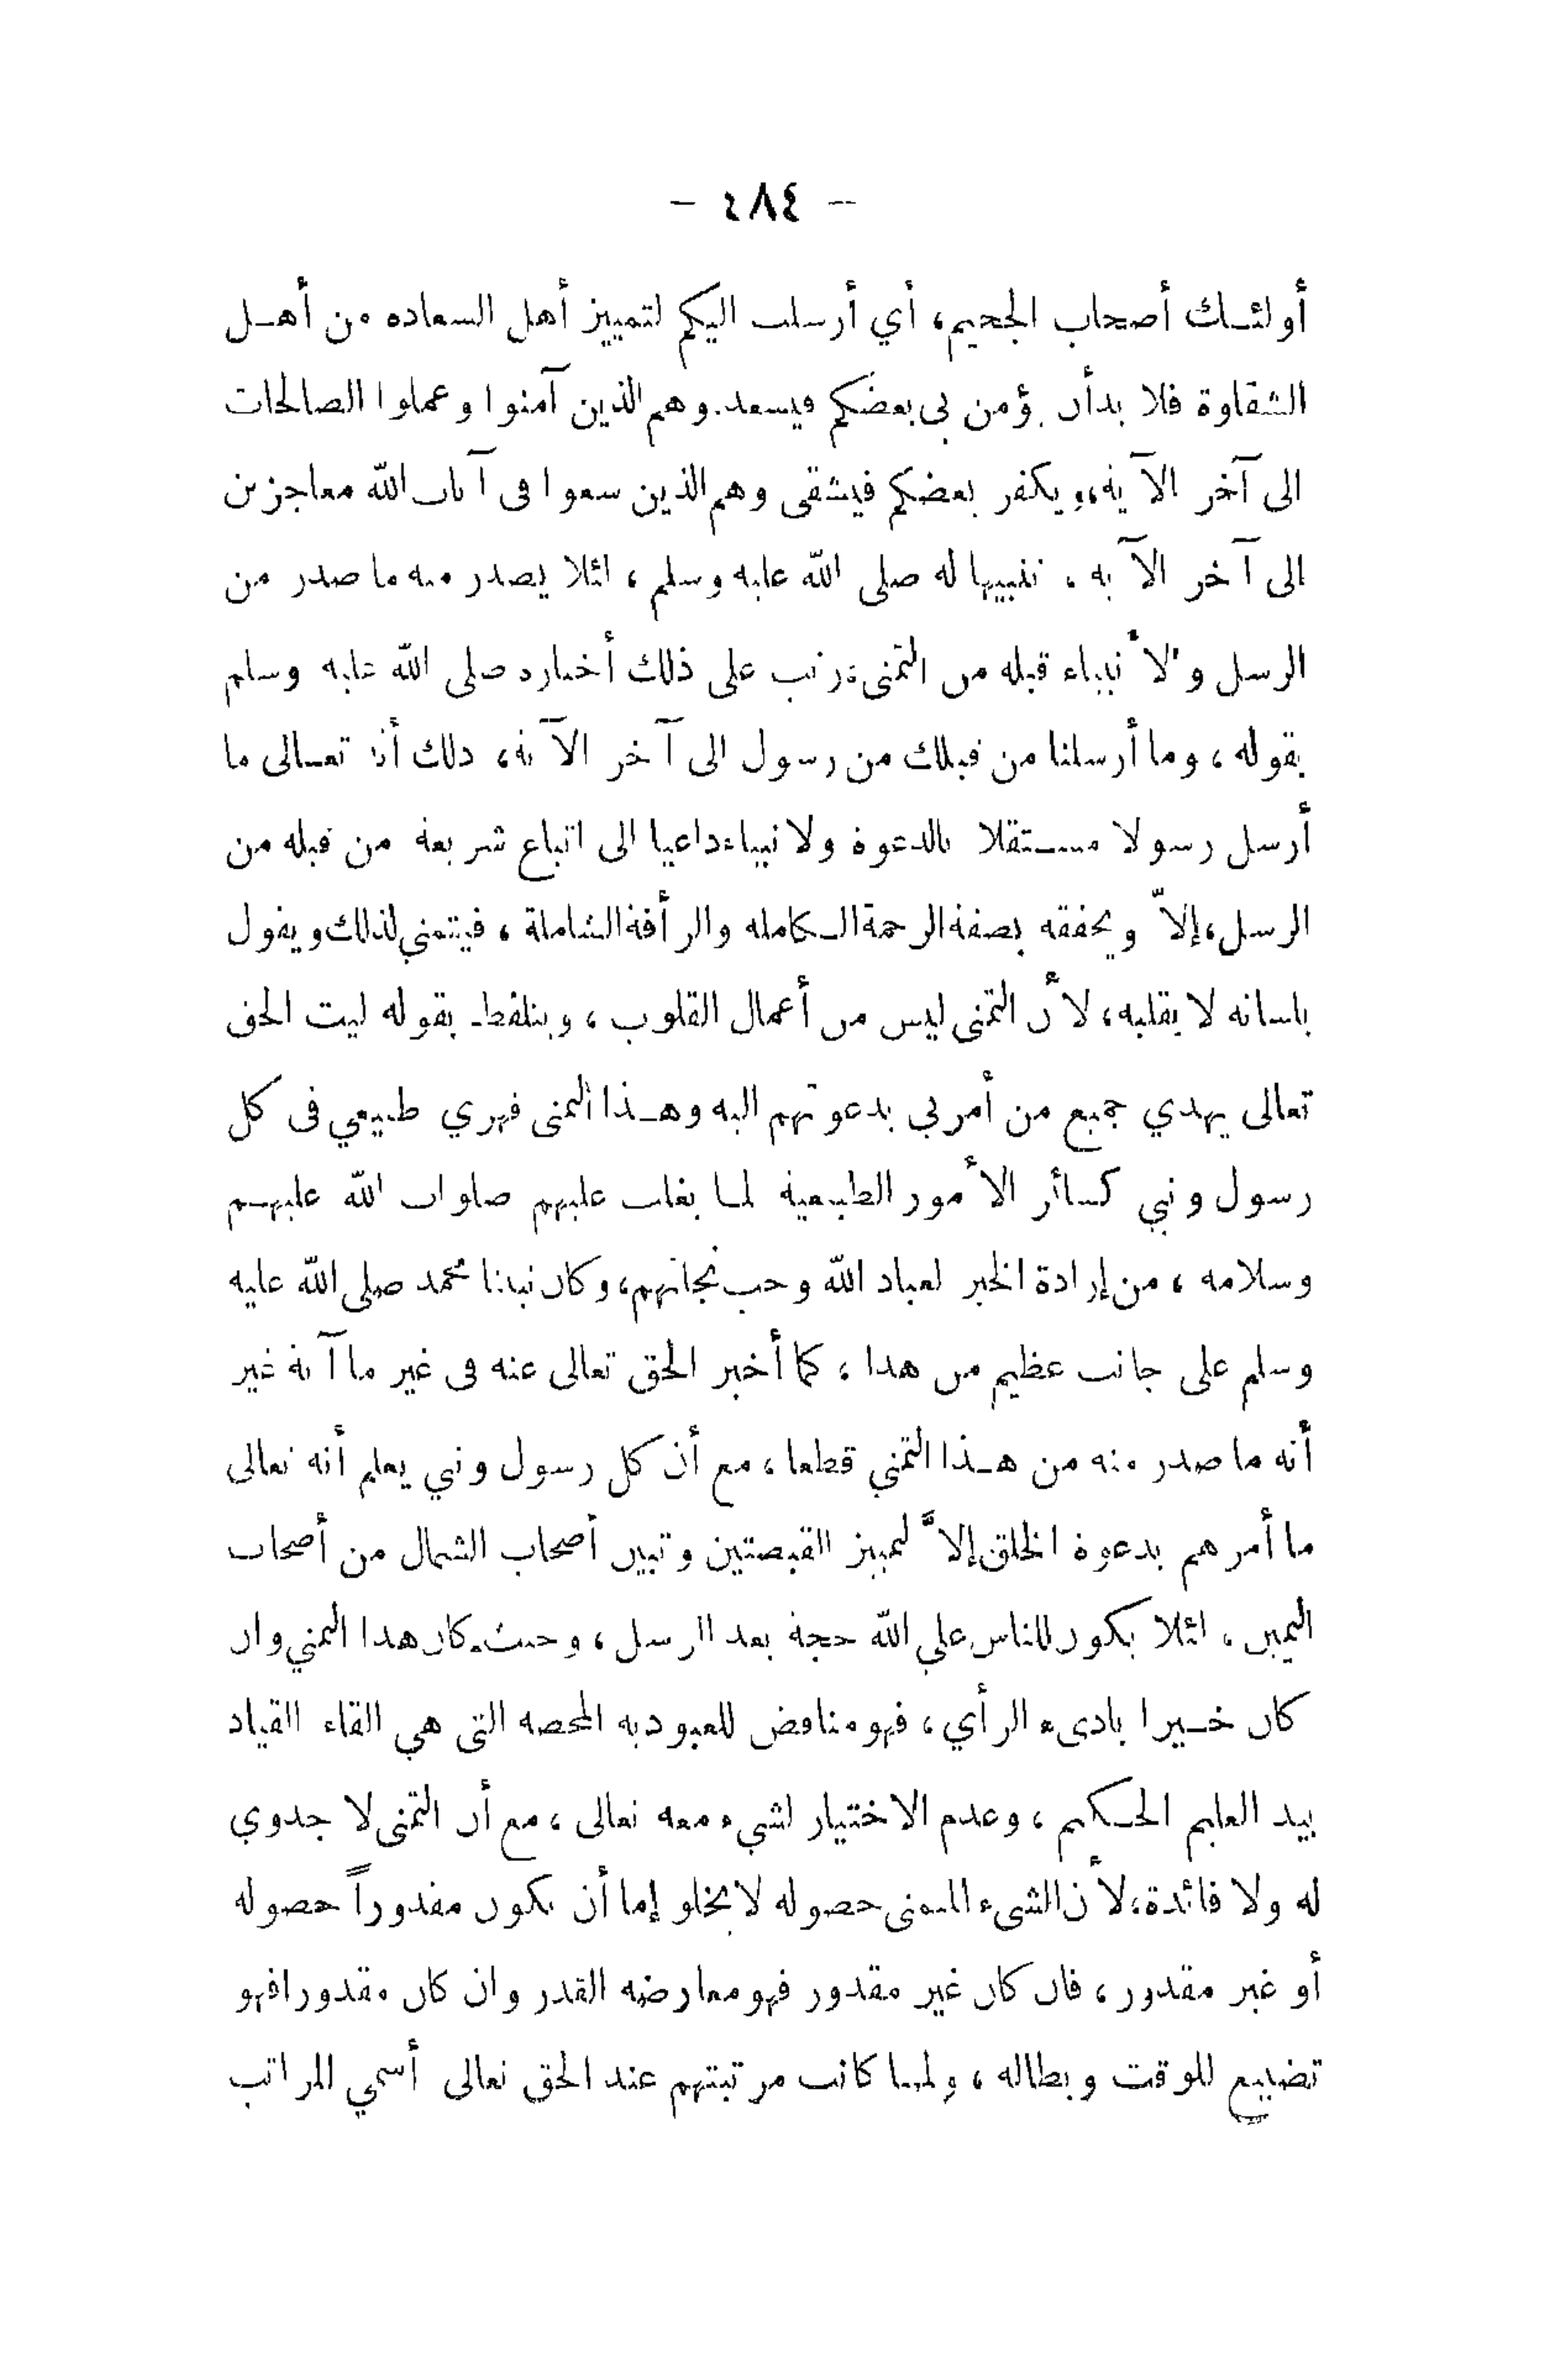 - ٤٨٤ -
أولئك أصحاب الجحيم، أي أرسلت اليكم لتمييز أهل السعادة من أهل
الشقاوة فلا بد أن يؤمن بي بعضكم فيسعد. وهم الذين آمنوا وعملوا الصالحات
الى آخر الآية، ويكفر بعضكم فيشقى وهم الذين سعوا في آيات الله معاجزين
الى آخر الآية ، تنبيها له صلى الله عليه وسلم ، لئلا يصدر منه ما صدر من
الرسل والأنبياء قبله من التمني ورتب على ذلك أخباره صلى الله عليه وسلم
بقوله ، وما أرسلنا من قبلك من رسول الى آخر الآية، ذلك أنه تعالى ما
أرسل رسولا مستقلا بالدعوة ولا نبياء داعيا الى اتباع شريعة من قبله من
الرسل، إلاّ ويحققه بصفة الرحمة الكاملة والرأفة الشاملة ، فيتمني لذلك ويقول
بلسانه لا بقلبه، لأن التمنى ليس من أعمال القلوب ، ويتلفظ بقوله ليت الحق
تعالى يهدي جميع من أمرني بدعوتهم اليه وهذا التمنى فهري طبيعي فى كل
رسول ونبي كسائر الأمور الطبيعية لما يغلب عليهم صلوات الله عليهم
وسلامه ، من إرادة الخير لعباد الله وحب نجاتهم، وكان نبينا محمد صلى الله عليه
وسلم على جانب عظيم من هذا ، كما أخبر الحق تعالى عنه فى غير ما آية غير
أنه ما صدر منه من هذا التمني قطعا ، مع أن كل رسول ونبي يعلم أنه تعالى
ما أمرهم بدعوة الخلق إلاَّ لتمييز القبضتين وتبيين أصحاب الشمال من أصحاب
اليمين ، لئلا يكون للناس علي الله حجة بعد الرسل ، وحيث كان هذا التمني وان
كان خيرا بادىء الرأي ، فهو مناقض للعبودية المحضة التى هي القاء القياد
بيد العليم الحكيم ، وعدم الاختيار لشيء معه تعالى ، مع أن التمنى لا جدوي
له ولا فائدة، لأن الشىء المتمنى حصوله لا يخلو إما أن يكون مقدوراً حصوله
أو غير مقدور ، فان كان غير مقدور فهو معارضة القدر وان كان مقدورا فهو
تضييع للوقت وبطاله ، ولما كانت مرتبتهم عند الحق تعالى أسمي المراتب